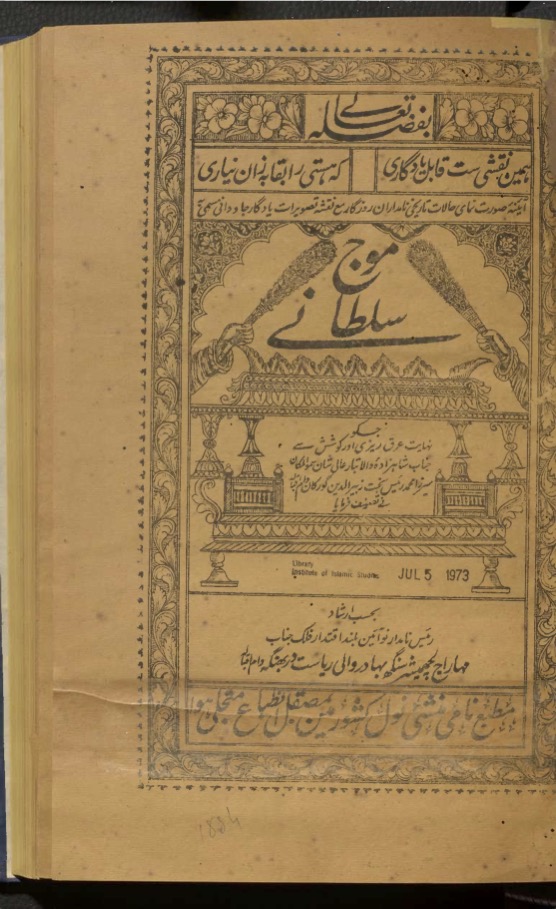 بفضلہ تعالے
ہمین نقشی ست قابل یادگاری
کہ ہستی را بقا پژان نیاری
آئینۂ صورت نمای حالات تاریخی نامداران روزگار مع نقشہ تصویرات یادگار جاودانی مسمی
موج
سلطانے
جسکو
نہایت عرق ریزی اور کوشش سے
جناب شاہزادہ والا تبار عالی شان
میرزا محمد رئیس بخت زبیر الدین گورگان
نے تصنیف فرمایا
Library
Institute of Islamic Studies
JUL 5 1973
بحسب ارشاد
رئیس نامدار نوآئین بلند اقتدار فلک جناب
مہاراج لچھمیشر سنگھ بہادر والی ریاست دربھنگہ دام اقبالہ
مطبع نامی منشی نول کشور مین مصقل انطباع متجلی ہوا
1884